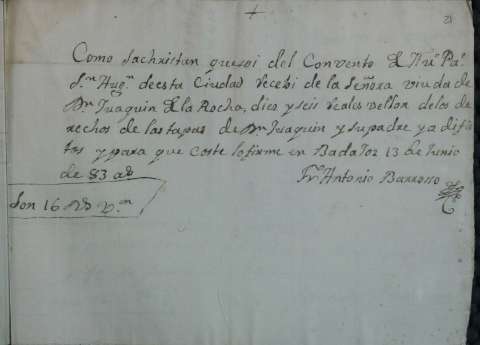 +
21
Como sachristan que soi del Convento de Nrõ Pe.
Sn. Augn. de esta Ciudad recebi de la Señora viuda de
Dn. Juaquin de la Rocha, diez y seis reales vellon de los de
rechos de las tapas de Dn. Juaquin y su padre ya difũ
tos y para que coste lo firme en Badajoz 13 de Junio
de 83 as
Fr. Antonio Barroso
son 16 rs vn